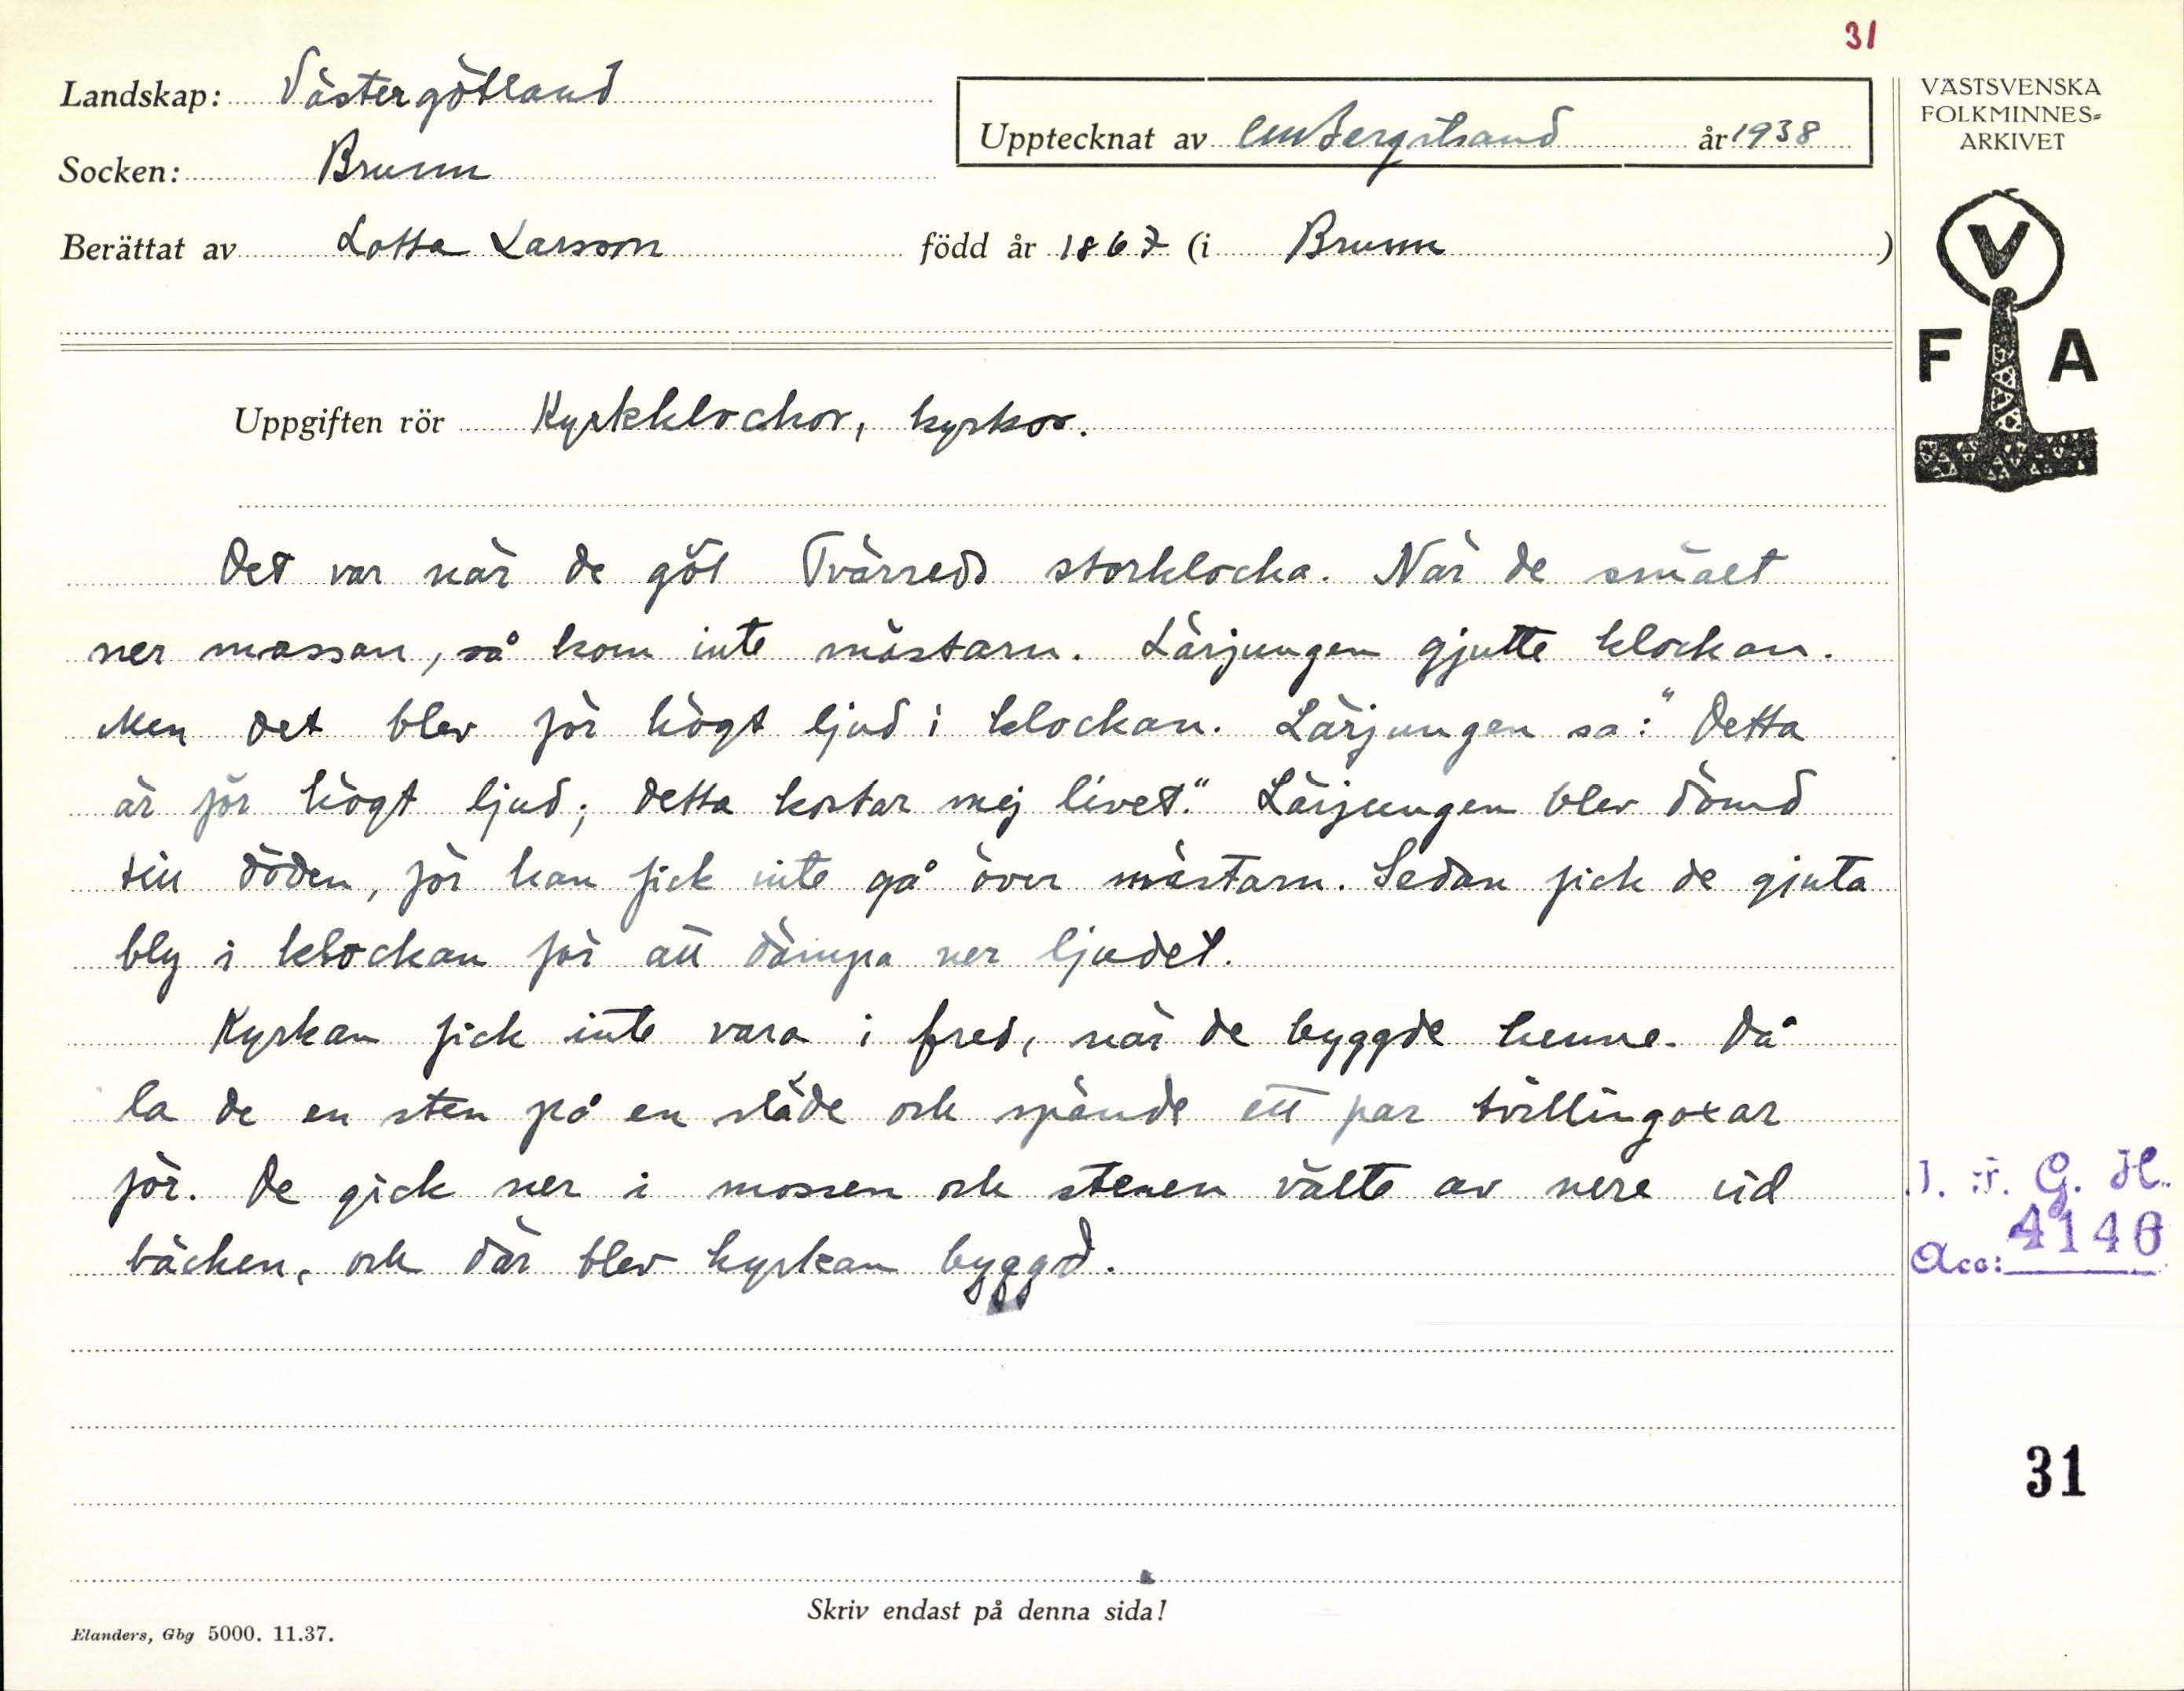 31
Landskap: Västergötland
Upptecknat av CM Bergstrand år 1938
Socken: Brunn
Berättat av Lotta Larsson född år 1867 (i Brunn)
VÄSTSVENSKA
FOLKMINNES-
ARKIVET
V
F A
Uppgiften rör Kyrkklockor, kyrkor.
Det var när de göt Tvärreds storklocka. När de smält
ner massan, så kom inte mästarn. Lärjungen gjutte klockan.
Men det blev för högt ljud i klockan. Lärjungen sa: "Detta
är för högt ljud; detta kostar mej livet." Lärjungen blev dömd
till döden, för han fick inte gå över mästarn. Sedan fick de gjuta
bly i klockan för att dämpa ner ljudet.
Kyrkan fick inte vara i fred, när de byggde henne. Då
la de en sten på en släde och spände ett par tvillingoxar
för. De gick ner i mossen och stenen välte av nere vid
bäcken, och där blev kyrkan byggd.
I. F. G. H.
Acc: 4140
31
Skriv endast på denna sida!
Elanders, Gbg 5000. 11.37.